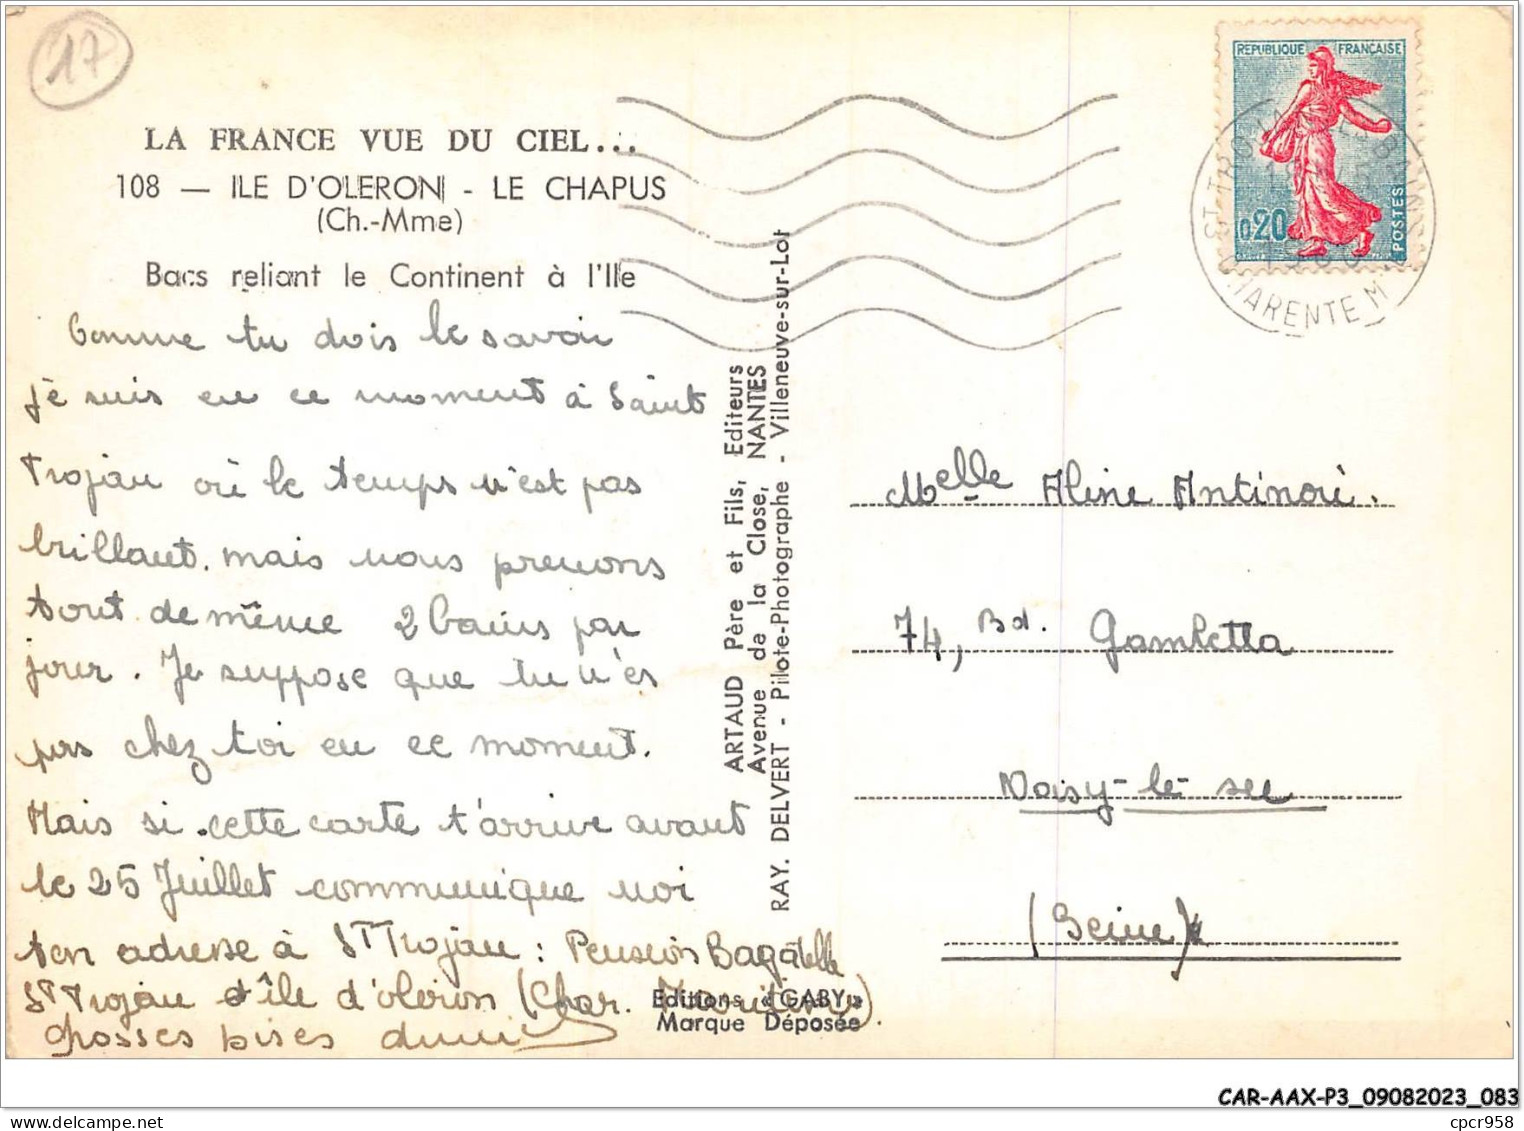 17
LA FRANCE VUE DU CIEL...
108 — ILE D'OLERON - LE CHAPUS
(Ch.-Mme)
Bacs reliant le Continent à l'Ile
Comme tu dois le savoir
je suis en ce moment à Saint
Trojan où le temps n'est pas
brillant. mais nous prenons
tout de même 2 bains par
jour. Je suppose que tu n'es
pas chez toi en ce moment.
Mais si cette carte t'arrive avant
le 25 Juillet communique moi
ton adresse à St Trojan : Pension Bagatelle
St Trojan d'île d'oleron (Char. Maritime)
Grosses bises
ARTAUD Père et Fils, Editeurs
Avenue de la Close, NANTES
RAY. DELVERT - Pilote-Photographe - Villeneuve-sur-Lot
Editions « GABY »
Marque Déposée
REPUBLIQUE FRANÇAISE
0,20
POSTES
ST TROJAN LES BAINS
CHARENTE MME
Melle Aline Antinori.
74, Bd. Gambetta
Noisy-le-sec
(Seine)
CAR-AAX-P3_09082023_083
cpcr958